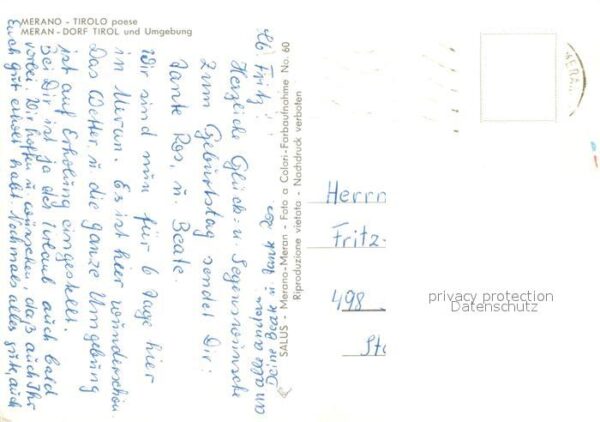 MERANO - TIROLO paese
MERAN - DORF TIROL und Umgebung
Lb Fritz!
Herzliche Glück- u. Segenswünsche
zum Geburtstag sendet Dir:
Tante Ros, u. Beate.
Wir sind nun für 6 Tage hier
in Meran. Es ist hier wunderschön.
Das Wetter, u. die ganze Umgebung
ist auf Erholung eingestellt.
Bei Dir ist ja der Urlaub auch bald
vorbei. Wir hoffen u. wünschen, daß auch Ihr
Euch gut erholt habt. Nochmals alles gute, auch
an alle andern
Deine Beate u. Tante Ros
SALUS - Merano-Meran - Foto a Colori-Farbaufnahme No. 60
Riproduzione vietata - Nachdruck verboten
MERA
Herrn
Fritz
498
Sta
privacy protection
Datenschutz